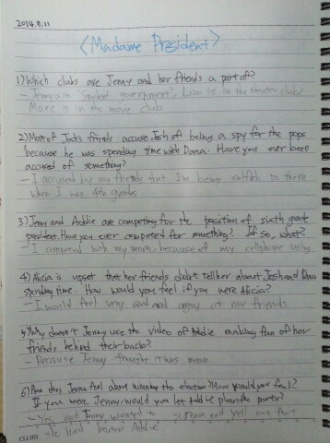 2014.8.11
<Madame President>
1) Which clubs are Jenny and her friends a part of?
- Jenny is in "student government", in the theater club/
More is in the movie club
2) Most of Josh's friends accuse Josh of being a spy for the pops
because he was spending time with Dana. Have you ever been
accused of something?
- I accused by my friends that I'm being selfish to them
when I was 4th grade
3) Jenny and Addie are competing for the position of sixth grade
president. Have you ever competed for something? If so, what?
- I competed with my mom because of my cellphone using
4) Alicia is upset that her friends didn't tell her about Josh and Dana
spending time. How would you feel if you were Alicia?
- I would feel very sad and angry at my friends
5) Why doesn't Jenny use the video of Addie making fun of her
friends behind their back?
- Because Jenny thought it was mean
6) How does Jenny feel about winning the election? How would you feel?
If you were Jenny would you let Addie plan the party?
Jenny wanted to scream and yell out that
She had beaten Addie